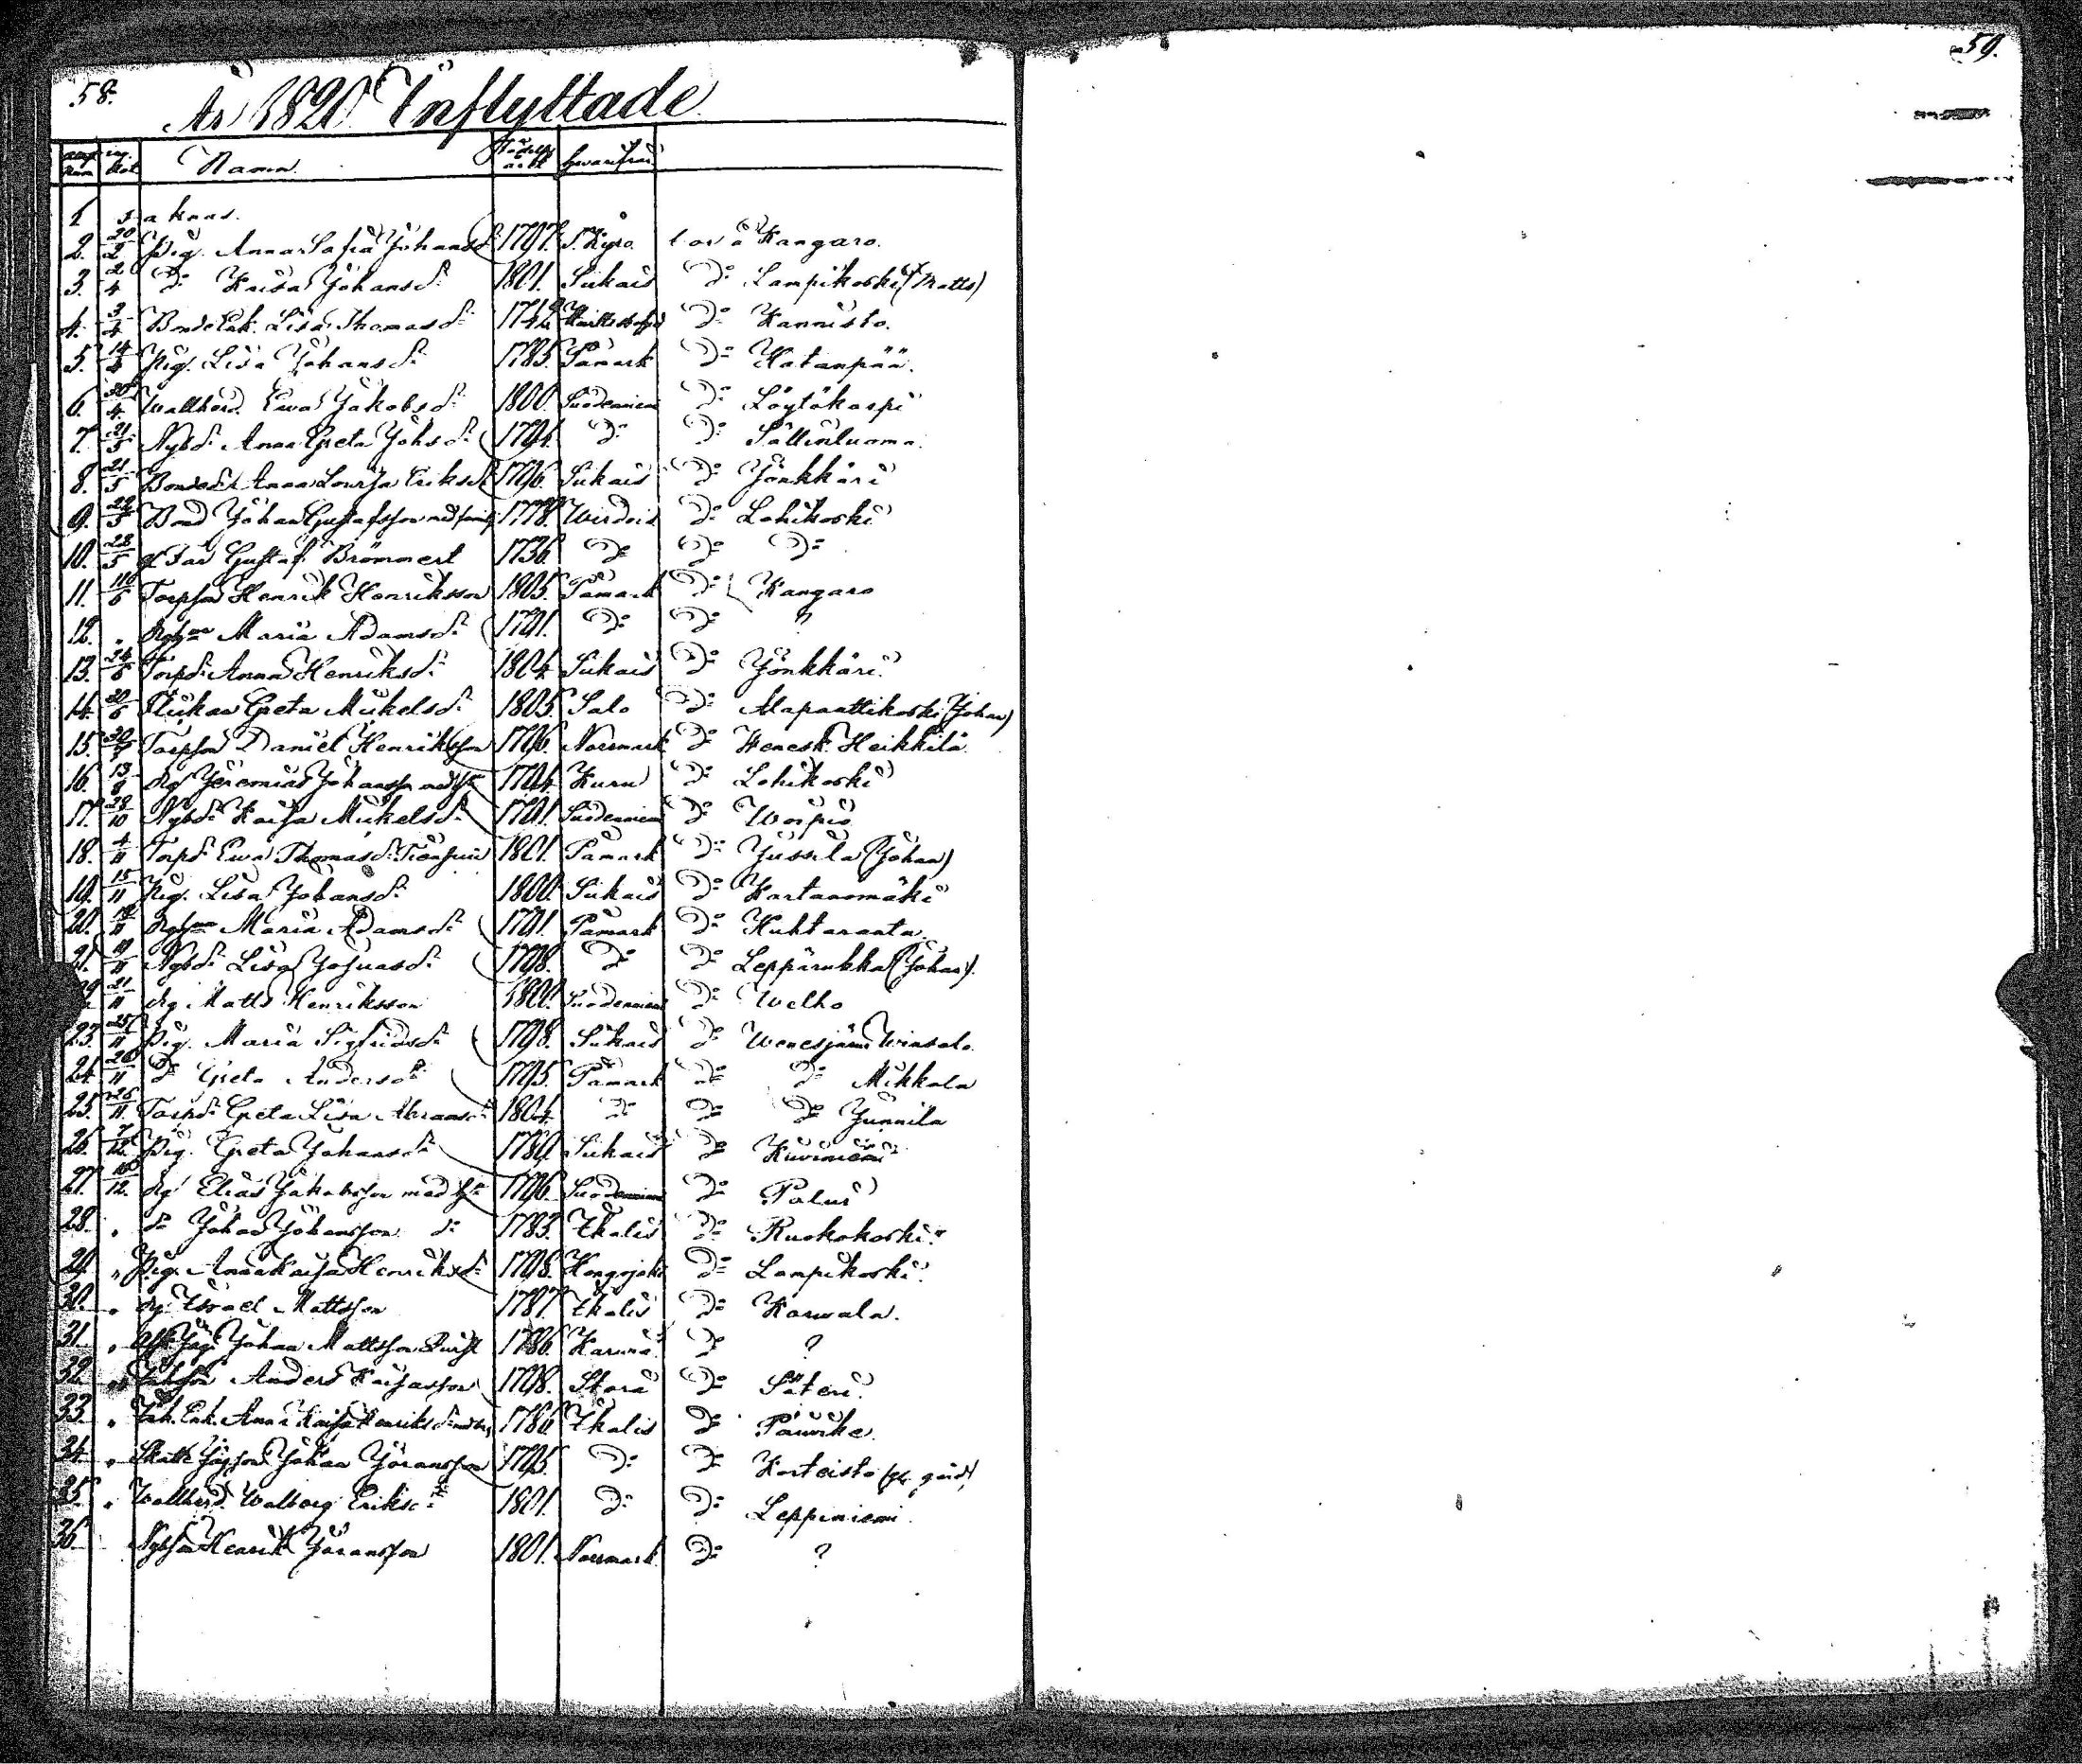 58.
59.
År 1820 Inflyttade
Namn. Födelse året hvarifrån
1 saknas.
2. 20/2 Pig. Anna Safia Johansd:r 1797. S. Kyro bor å Kangaro.
3. 2/4 D:o Kaisa Johansd:r 1801. Siikais D:o Lampikoski (Matts)
4. 3/4 Bonde Enk. Lisa Thomasd:r 1742 D:o Kannisto.
5. 14/4 Pig. Lisa Johansd:r 1785. Påmark D:o Katanpää.
6. 30/4 Wallhird. Ewa Jakobsd:r 1800. Suodenniemi D:o Löytökorpi
7. 21/5 Nybd:r Anna Greta Johsd:r 1794. D:o D:o Sällinluoma.
8. 21/5 Bonded:r Anna Lovisa Eriksd:r 1796. Siikais D:o Jönkkäri
9. 28/5 Bond Johan Gustafsson med familj 1778. Wirdois D:o Lohikoski
10. 28/5 gl Far Gustaf Brommert 1736. D:o D:o D:o
11. 11/6 Torpson Henrik Henriksson 1805. Påmark D:o Kangaro
12. " Maria Adamsd:r 1791. D:o D:o ?
13. 24/6 Torpd:r Anna Henriksd:r 1804. Siikais D:o Jönkkäri.
14. 30/6 Flickan Greta Mickelsd:r 1805. Salo D:o Alapaattikoski (Johan)
15. 30/7 Torpson Daniel Henriksson 1796. Norrmark D:o Wenesk. Heikkilä
16. 13/8 drg Jeremias Johansson med h:u 1794. Kuru D:o Lohikoski
17. 28/10 Nybd:r Kaisa Mickelsd:r 1791. Suodenniemi D:o Worpio
18. 4/11 Torpd:r Ewa Thomasd:r 1801. Påmark D:o Jussila (Johan)
19. 15/11 Pig. Lisa Johansd:r 1800. Siikais D:o Kartanomäki
20. 18/11 Maria Adamsd:r 1791. Påmark D:o Kuhtaranta.
21. 19/11 Nybd:r Lisa Josuasd:r 1798. D:o D:o Leppärukka (Johan).
22. 21/11 drg Matts Henriksson 1800. Suodenniemi D:o Welho
23. 25/11 Pig. Maria Sigfridsd:r 1798. Siikais D:o Wenesjärvi Winsala.
24. 26/11 D:o Greta Andersd:r 1795. Påmark D:o D:o Mikkola
25. 26/11 Torpd:r Greta Lisa Abramsd:r 1804. D:o D:o D:o Junnila
26. 7/12 Pig. Greta Johansd:r 1789. Siikais D:o Kiviniemi
27. 10/12 drg Elias Jakobsson med h:u 1796. Suodenniemi D:o Palus
28. " D:o Johan Johansson D:o 1783. Ikalis D:o Ruokokoski.
29. " Pig. Anna Kaisa Henriksd:r 1798. Hongojoki D:o Lampikoski.
30. " drg. Israel Mattsson 1787. Ikalis D:o Karwala.
31. " Johan Mattsson 1786. D:o ?
32. " Anders Kaisasson 1798. Storå D:o Säteri.
33. " Enk. Anna Kaisa Henriksd:r 1786. Ikalis D:o
34. " Johan Jöransson 1795. D:o D:o Korteisto
35. " Wallhird. Walborg Eriksd:r 1801. D:o D:o Leppiniemi.
36. Nybson Henrik Jöransson 1801. Norrmark D:o ?